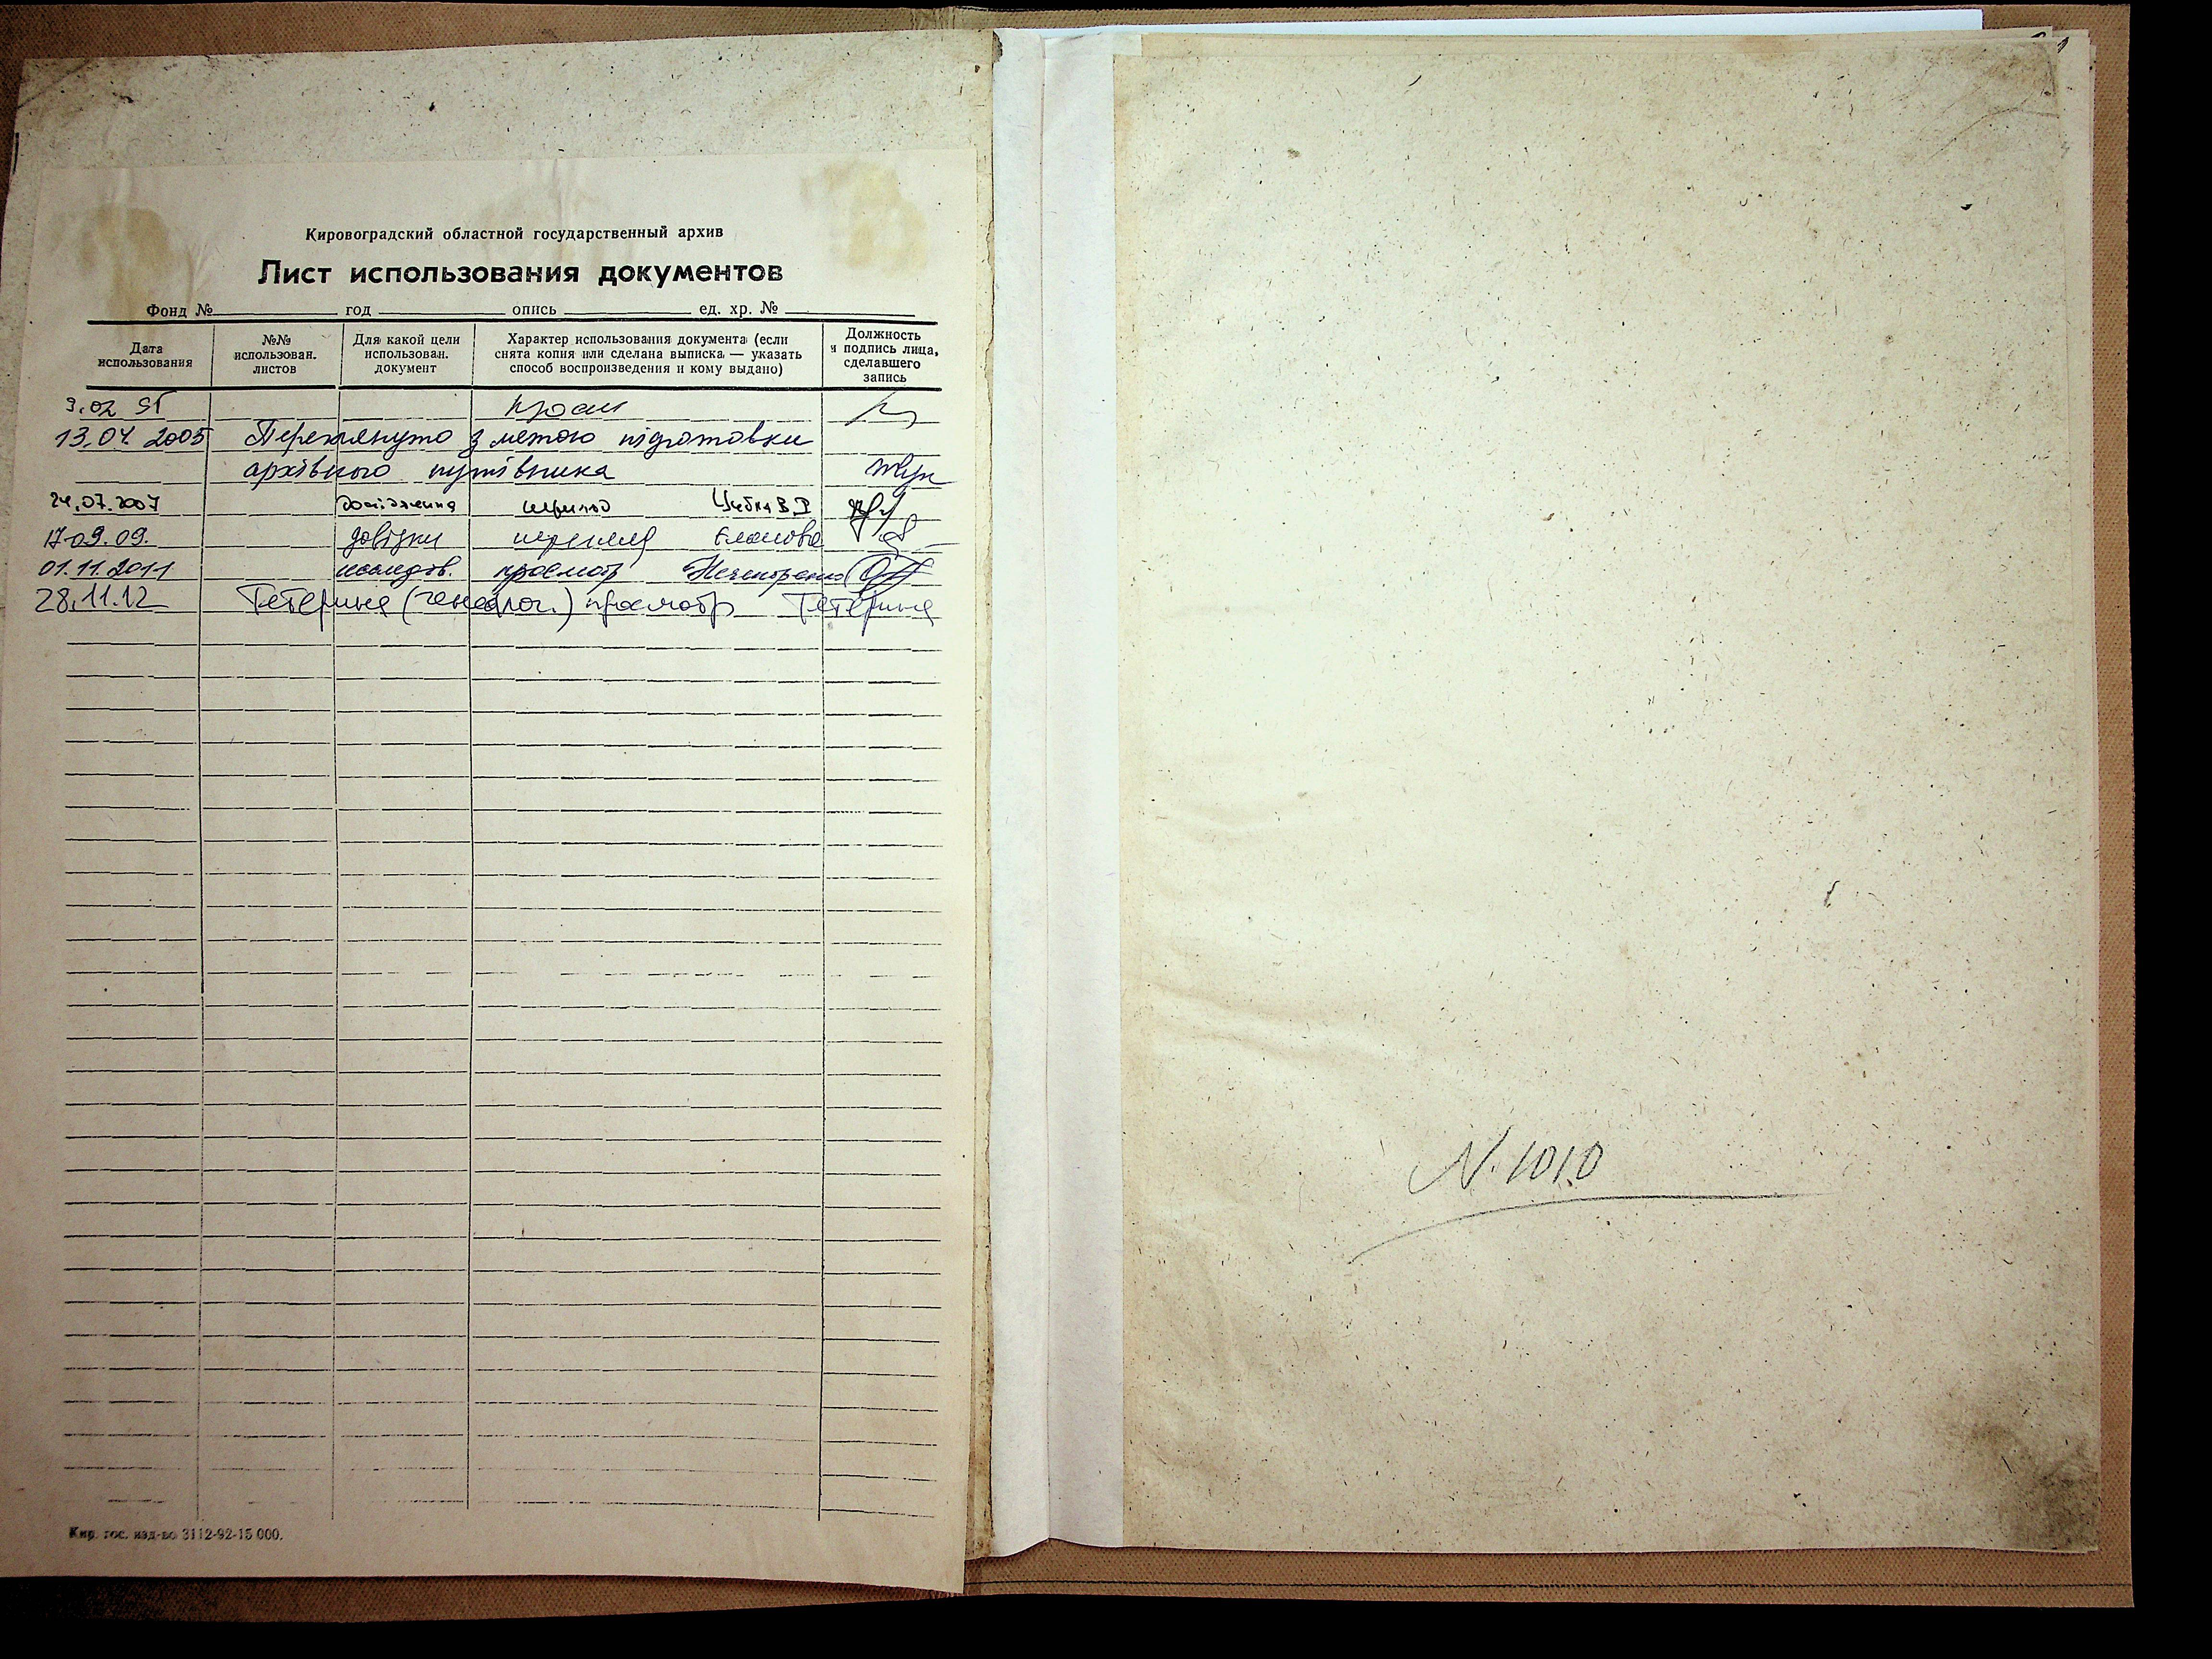 Кировоградский областной государственный архив
Лист использования документов
Фонд № год опись ед. хр. №
Дата использования
№№ использован. листов
Для какой цели использован. документ
Характер использования документа (если снята копия или сделана выписка — указать способ воспроизведения и кому выдано)
Должность и подпись лица, сделавшего запись
9.02
13.04.2005 Переглянуто з метою підготовки
архівного путівника
24.07.2007 дослідження перегляд
17.09.09. довідки перегляд
01.11.2011 исследов. просмотр Нечипоренко
28.11.12 Тетерина (генеалог.) просмотр Тетерина
Кир. гос. изд-во 3112-92-15 000.
N. 1010